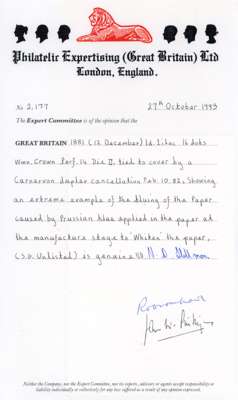 Philatelic Expertising (Great Britain) Ltd
London, England.
No 2,177
27th October 1993
The Expert Committee is of the opinion that the
GREAT BRITAIN 1881 (12 December) 1d. Lilac 16 dots
Wmk. Crown Perf. 14 Die II, tied to cover by a
Carnarvon duplex cancellation Feb. 10. 82, showing
an extreme example of the blueing of the paper
caused by Prussian blue applied in the paper at
the manufacture stage to 'Whiten' the paper,
(S.G. Unlisted) is genuine
Neither the Company, nor the Expert Committee, nor its experts, advisers or agents accept responsibility or
liability individually or collectively for any loss suffered as a result of any opinion expressed.